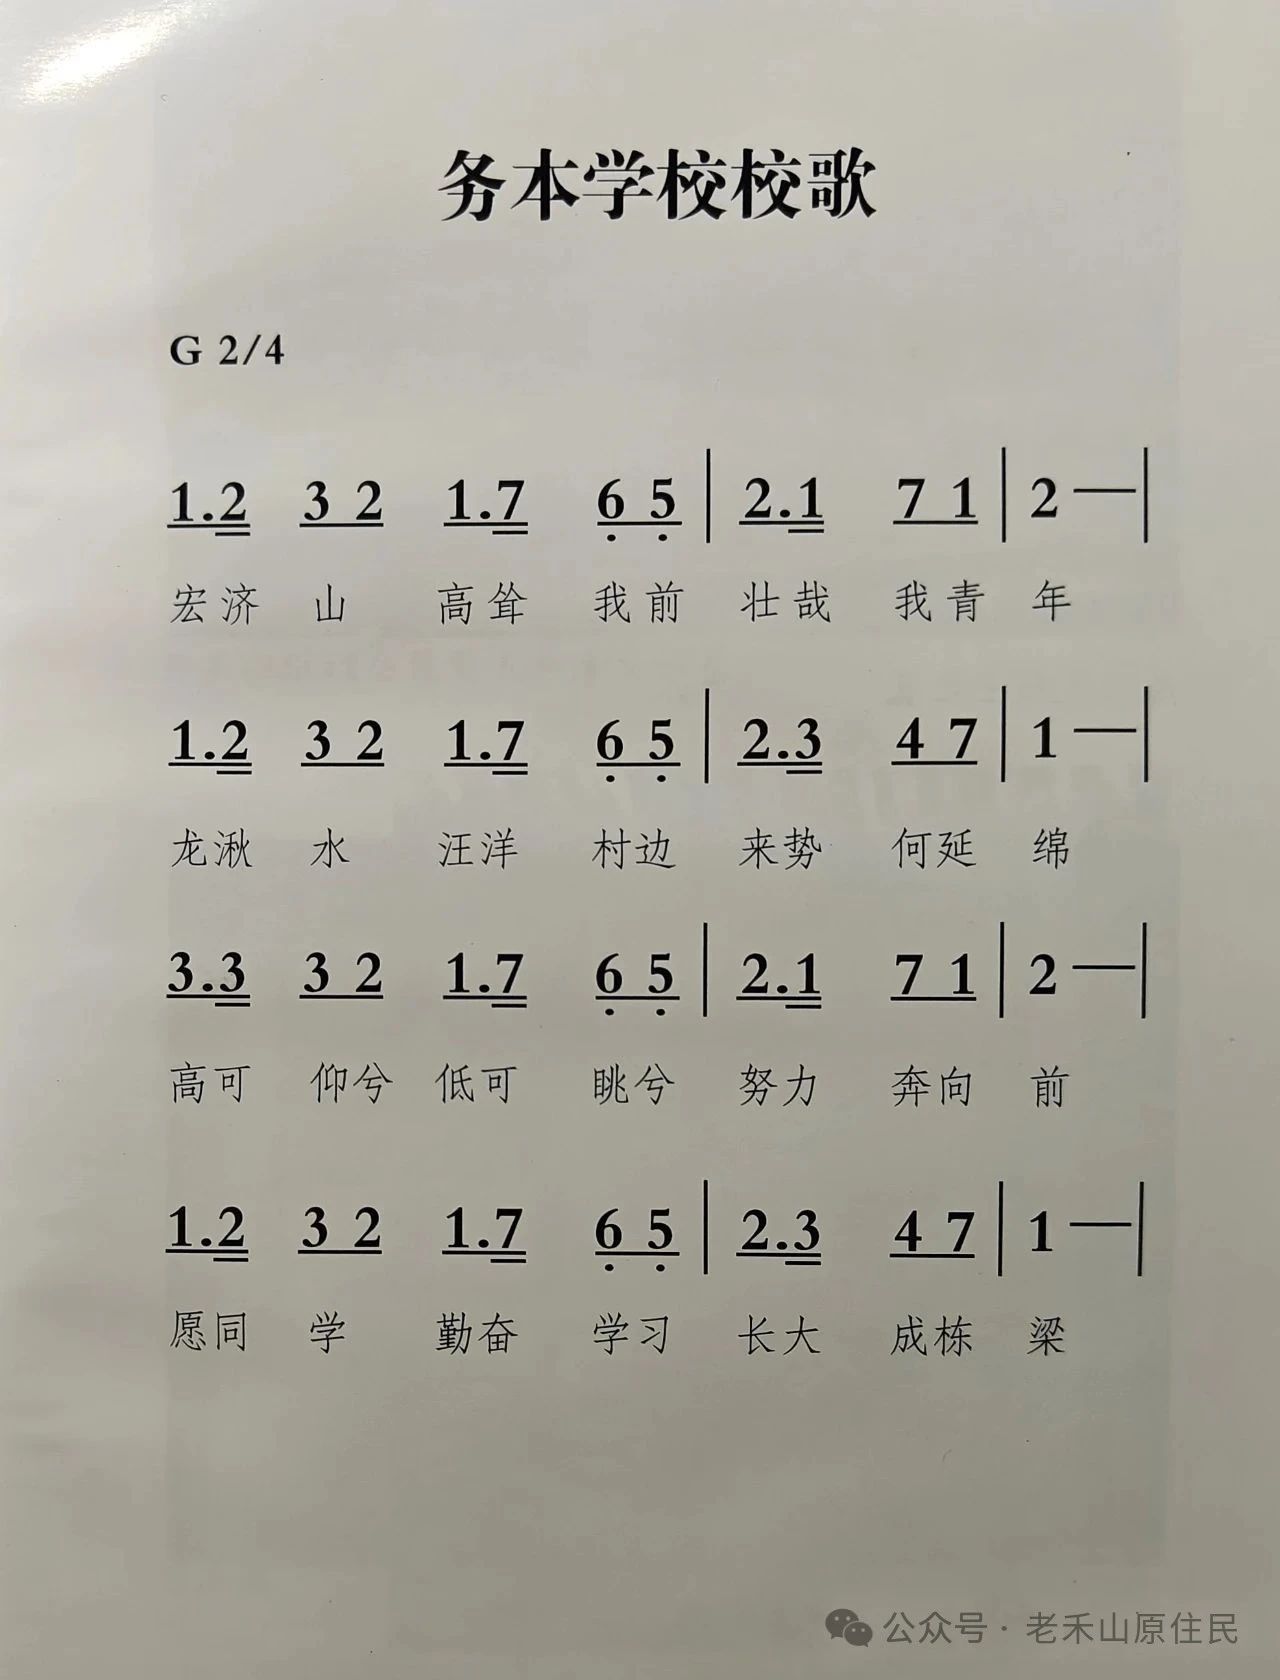 务本学校校歌
G 2/4
1.2 3 2 1.7 6 5 | 2.1 7 1 | 2 — |
宏济 山 高耸 我前 壮哉 我青 年
1.2 3 2 1.7 6 5 | 2.3 4 7 | 1 — |
龙湫 水 汪洋 村边 来势 何延 绵
3.3 3 2 1.7 6 5 | 2.1 7 1 | 2 — |
高可 仰兮 低可 眺兮 努力 奔向 前
1.2 3 2 1.7 6 5 | 2.3 4 7 | 1 — |
愿同 学 勤奋 学习 长大 成栋 梁
公众号 · 老禾山原住民